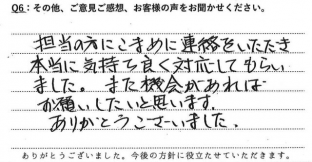 Q6：その他、ご意見ご感想、お客様の声をお聞かせください。
担当の方にこまめに連絡をいただき
本当に気持ち良く対応してもらい
ました。また機会があれば
お願いしたいと思います。
ありがとうございました。
ありがとうございました。今後の方針に役立たせていただきます。